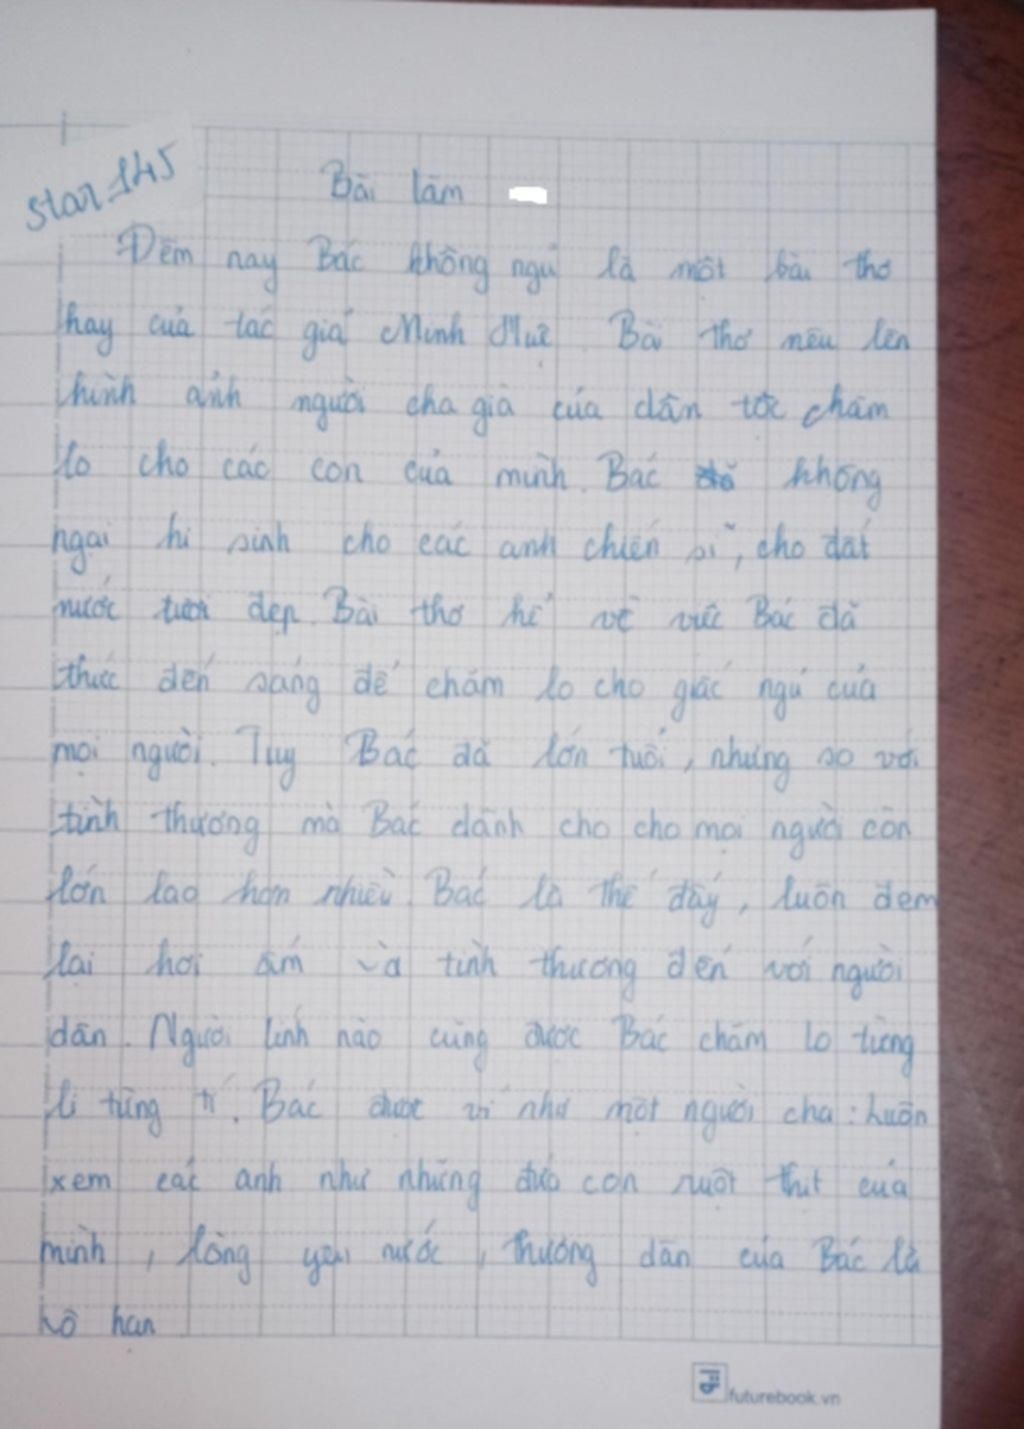 star145
Bài làm
Đêm nay Bác không ngủ là một bài thơ
hay của tác giả Minh Huệ. Bài thơ nêu lên
hình ảnh người cha già của dân tộc chăm
lo cho các con của mình. Bác không
ngại hi sinh cho các anh chiến sĩ, cho đất
nước tươi đẹp. Bài thơ kể về việc Bác đã
thức đến sáng để chăm lo cho giấc ngủ của
mọi người. Tuy Bác đã lớn tuổi, nhưng so với
tình thương mà Bác dành cho cho mọi người còn
lớn lao hơn nhiều. Bác là thế đấy, luôn đem
lại hơi ấm và tình thương đến với người
dân. Người lính nào cũng được Bác chăm lo từng
li từng tí. Bác được ví như một người cha: Luôn
xem các anh như những đứa con ruột thịt của
mình, lòng yêu nước, thương dân của Bác là
vô hạn
futurebook.vn